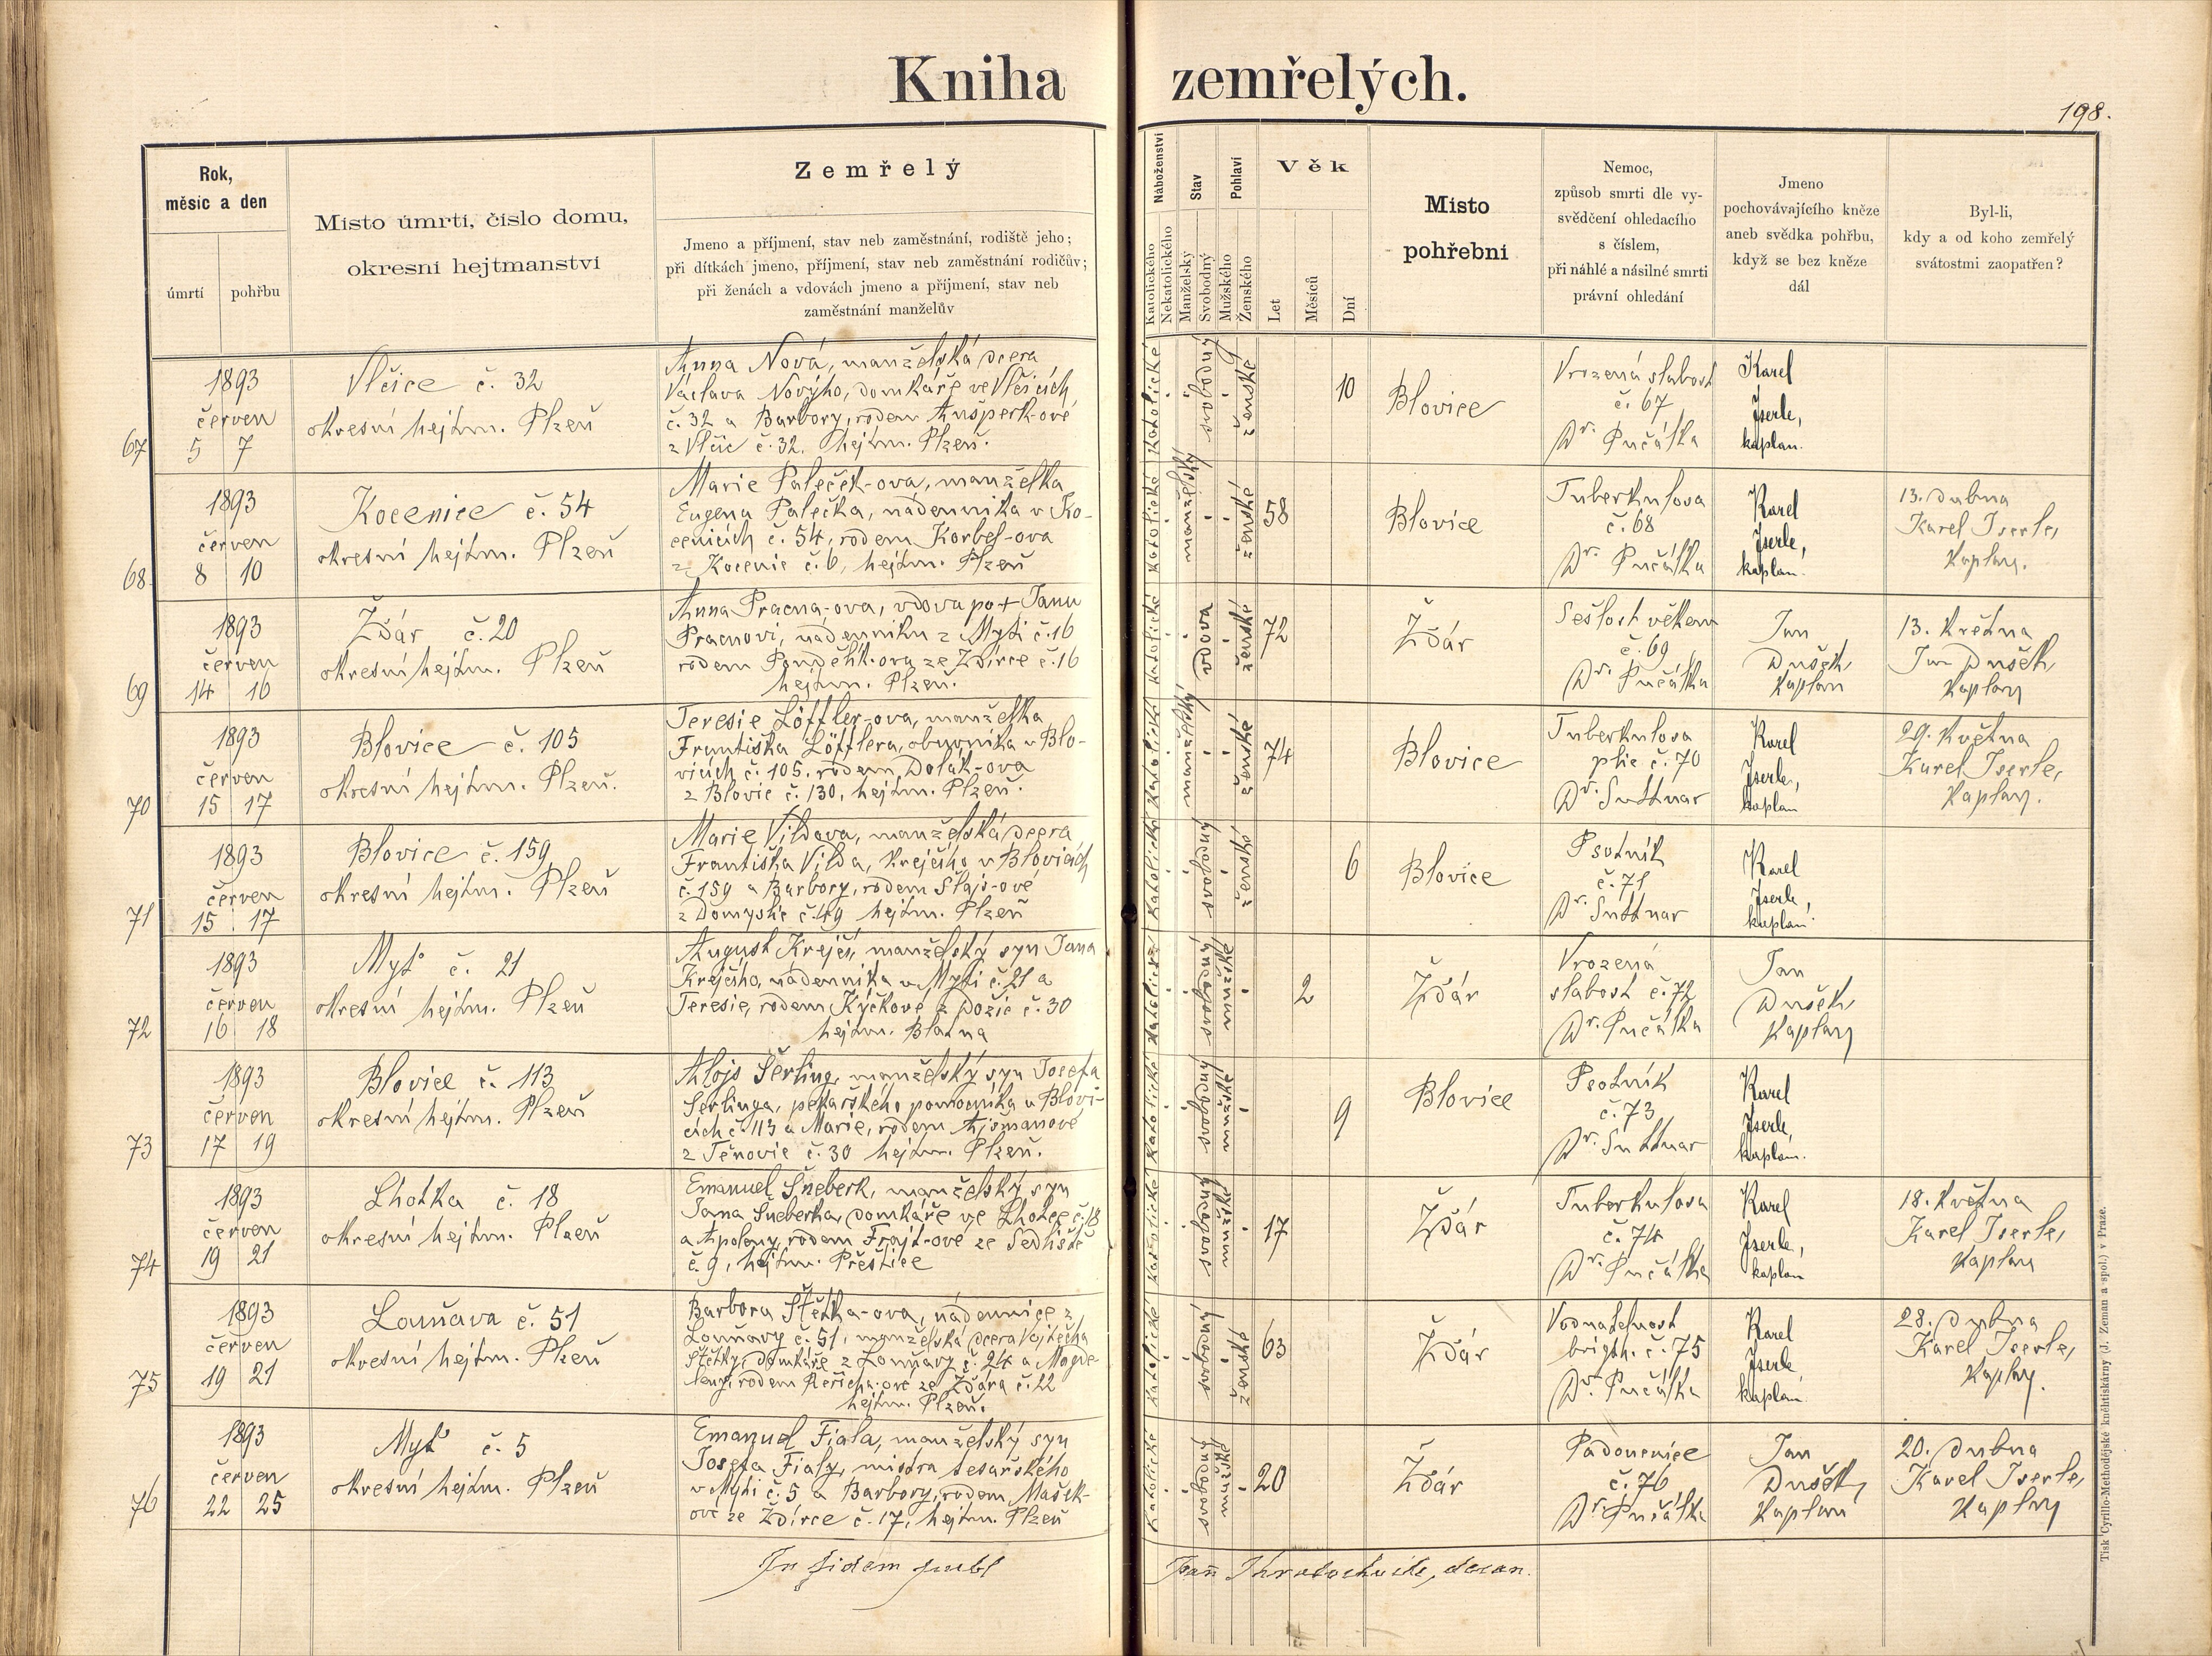 Kniha zemřelých.
198.
Rok,
měsíc a den
úmrtí
pohřbu
Místo úmrtí, číslo domu,
okresní hejtmanství
Zemřelý
Jmeno a příjmení, stav neb zaměstnání, rodiště jeho;
při dítkách jmeno, příjmení, stav neb zaměstnání rodičův;
při ženách a vdovách jmeno a příjmení, stav neb
zaměstnání manželův
Náboženství
Katolického
Nekatolického
Stav
Manželský
Svobodný
Pohlaví
Mužského
Ženského
Věk
Let
Měsíců
Dní
Místo
pohřební
Nemoc,
způsob smrti dle vy-
svědčení ohledacího
s číslem,
při náhlé a násilné smrti
právní ohledání
Jmeno
pochovávajícího kněze
aneb svědka pohřbu,
když se bez kněze
dál
Byl-li,
kdy a od koho zemřelý
svátostmi zaopatřen?
67
1893
červen
5 7
Vlčice č. 32
okresní hejtm. Plzeň
Anna Nová, manželská dcera
Václava Nového, domkáře ve Vlčicích
č. 32 a Barbory, rodem Anšperk-ové
z Vlčic č. 32. hejtm. Plzeň.
katolické
svobodný
ženské
10
Blovice
Vrozená slabost
č. 67
Dr. Pučálka
Karel
Iserle,
kaplan.
68
1893
červen
8 10
Kocenice č. 54
okresní hejtm. Plzeň
Marie Paleček-ova, manželka
Eugena Palečka, nádenníka v Ko-
cenicích č. 54, rodem Korbel-ova
z Kocenic č. 6, hejtm. Plzeň
katolické
manželský
ženské
58
Blovice
Tuberkulosa
č. 68
Dr. Pučálka
Karel
Iserle,
kaplan.
13. dubna
Karel Iserle,
kaplan.
69
1893
červen
14 16
Ždár č. 20
okresní hejtm. Plzeň
Anna Pracna-ova, vdova po + Janu
Pracnovi, nádenníku z Mýti č. 16
rodem Pondělík-ova ze Zdírce č. 16
hejtm. Plzeň.
katolické
vdova
ženské
72
Ždár
Sešlost věkem
č. 69
Dr. Pučálka
Jan
Dušek,
kaplan
13. května
Jan Dušek,
kaplan
70
1893
červen
15 17
Blovice č. 105
okresní hejtm. Plzeň.
Teresie Löffler-ova, manželka
Františka Löfflera, obuvníka v Blo-
vicích č. 105. rodem Dolak-ova
z Blovic č. 130, hejtm. Plzeň.
katolické
manželský
ženské
74
Blovice
Tuberkulosa
plic č. 70
Dr. Suttnar
Karel
Iserle,
kaplan
29. května
Karel Iserle,
kaplan.
71
1893
červen
15 17
Blovice č. 159
okresní hejtm. Plzeň
Marie Vildova, manželská dcera
Františka Vilda, krejčího v Blovicích
č. 159 a Barbory, rodem Šlajs-ové
z Domyslic č. 49 hejtm. Plzeň
katolické
svobodný
ženské
6
Blovice
Psotník
č. 71
Dr. Suttnar
Karel
Iserle,
kaplan.
72
1893
červen
16 18
Myť č. 21
okresní hejtm. Plzeň
August Krejčí, manželský syn Jana
Krejčího, nádenníka v Mýti č. 21 a
Teresie, rodem Kýčkové z Dožic č. 30
hejtm. Blatna
katolické
svobodný
mužské
2
Ždár
Vrozená
slabost č. 72
Dr. Pučálka
Jan
Dušek,
kaplan
73
1893
červen
17 19
Blovice č. 113
okresní hejtm. Plzeň
Alojs Šerling, manželský syn Josefa
Šerlinga, pekařského pomocníka v Blovi-
cích č. 113 a Marie, rodem Ajsmanové
z Těnovic č. 30 hejtm. Plzeň.
katolické
svobodný
mužské
9
Blovice
Psotník
č. 73
Dr. Suttnar
Karel
Iserle,
kaplan.
74
1893
červen
19 21
Lhotka č. 18
okresní hejtm. Plzeň
Emanuel Šneberk, manželský syn
Jana Šneberka, domkáře ve Lhotce č. 18
a Apoleny, rodem Frajt-ové ze Sedliště
č. 9, hejtm. Přeštice
katolické
svobodný
mužské
17
Ždár
Tuberkulosa
č. 74
Dr. Pučálka
Karel
Iserle,
kaplan
18. května
Karel Iserle,
kaplan
75
1893
červen
19 21
Louňava č. 51
okresní hejtm. Plzeň
Barbora Štětka-ova, nádennice z
Louňavy č. 51, manželská dcera Vojtěcha
Štětky, domkáře z Louňavy č. 24 a Magda-
leny, rodem Řeřicha-ové ze Ždára č. 22
hejtm. Plzeň.
katolické
svobodný
ženské
63
Ždár
Vodnatelnost
brigth. č. 75
Dr. Pučálka
Karel
Iserle
kaplan.
28. dubna
Karel Iserle,
kaplan.
76
1893
červen
22 25
Myť č. 5
okresní hejtm. Plzeň
Emanuel Fiala, manželský syn
Josefa Fialy, mistra tesařského
v Mýti č. 5 a Barbory, rodem Mašek-
ové ze Ždírce č. 17, hejtm. Plzeň
katolické
svobodný
mužské
20
Ždár
Padoucnice
č. 76
Dr. Pučálka
Jan
Dušek,
kaplan
20. dubna
Karel Iserle,
kaplan
In fidem publ
decan.
Tisk Cyrillo-Methodějské knihtiskárny (J. Zeman a spol.) v Praze.